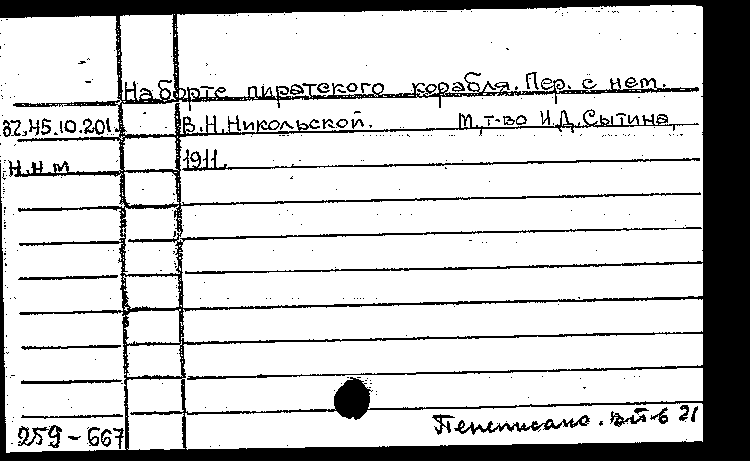 На борте пиратского корабля. Пер. с нем.
В.Н.Никольской. М, т-во И.Д.Сытина,
32.45.10.201.
1911.
Н.Н.М
259-667
Переписано.